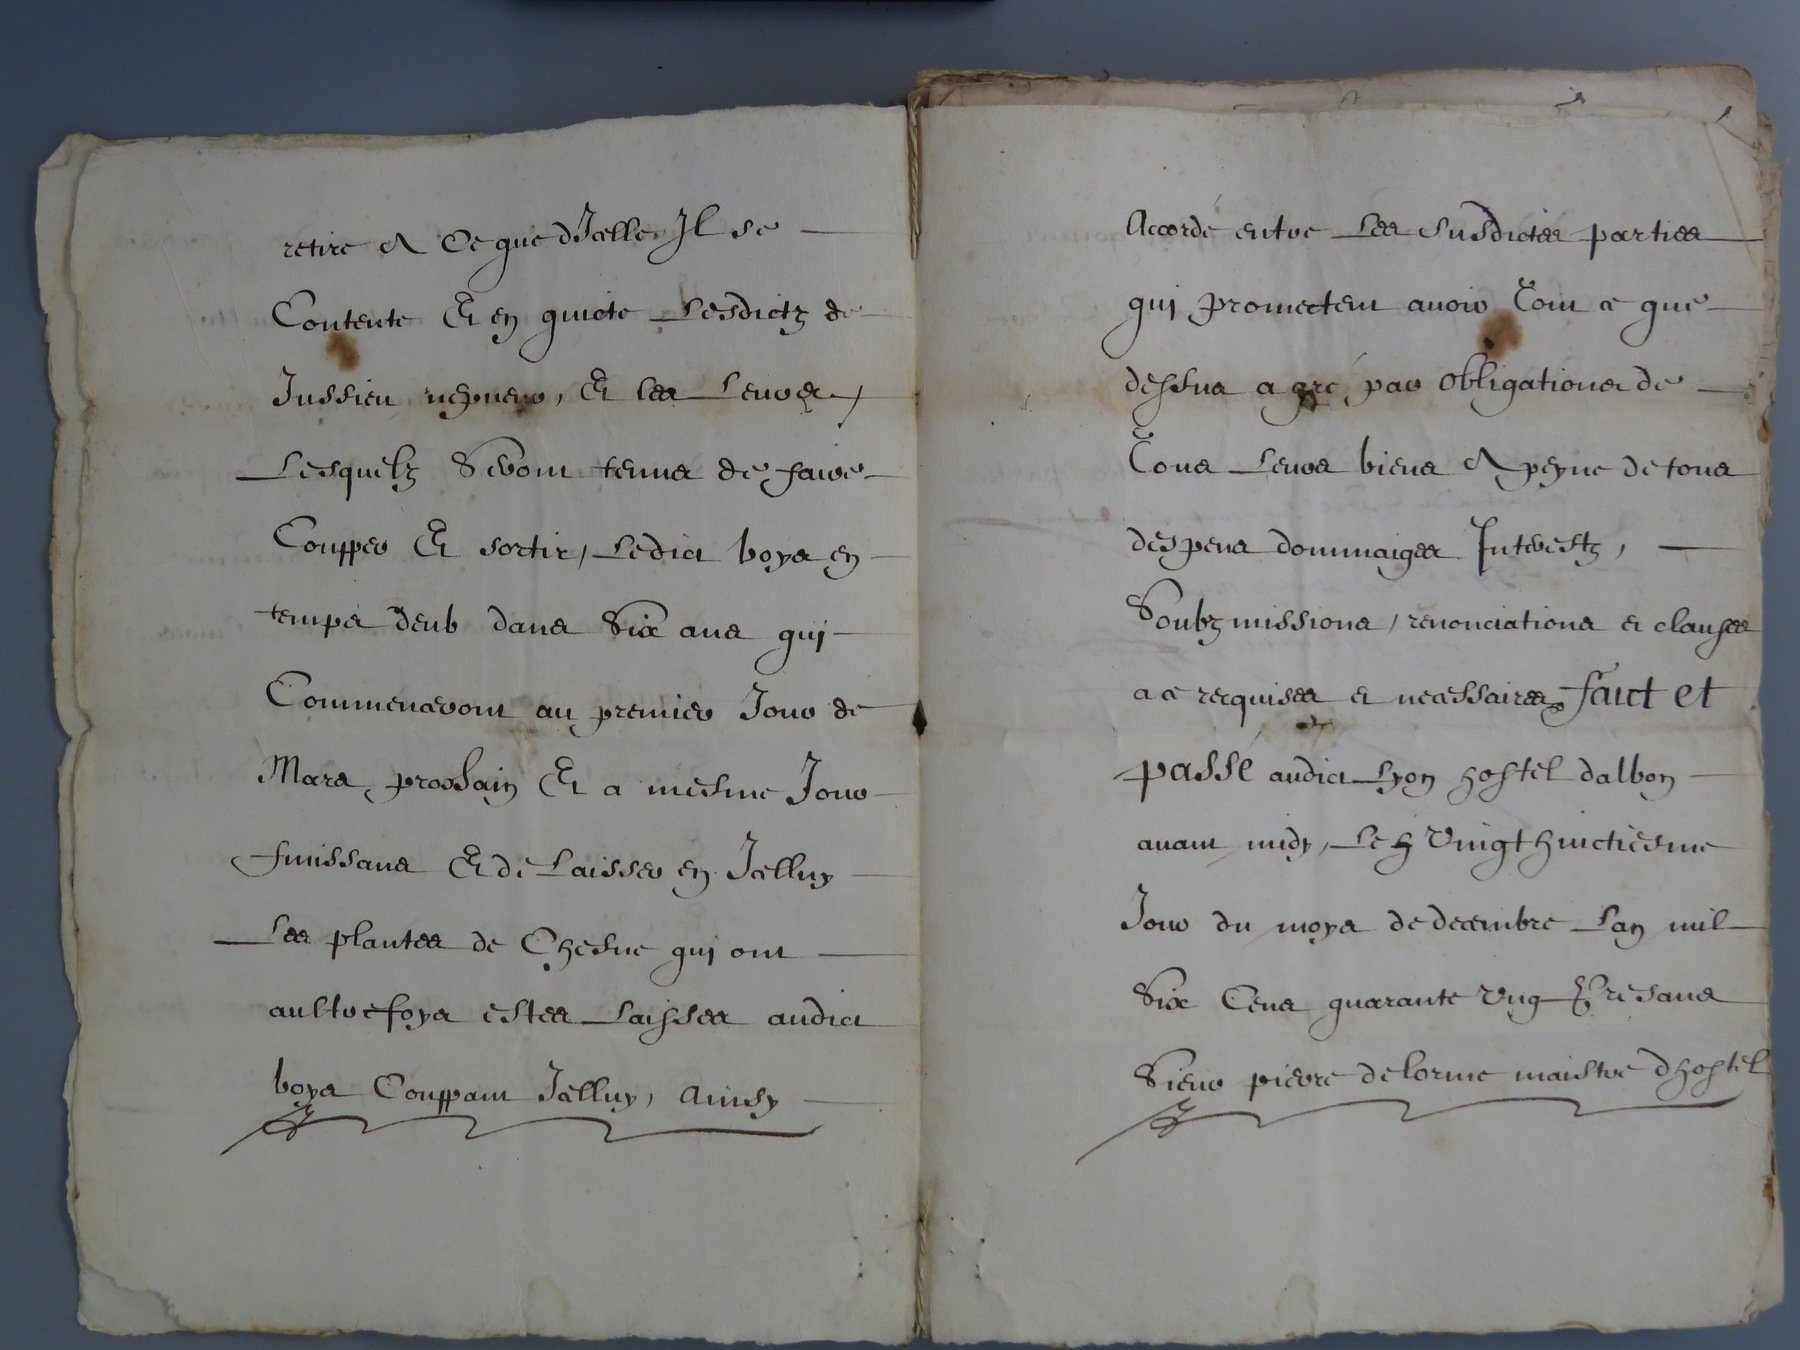 retire & Ce que dIcelle Il se
Contente Et en quicte Lesdictz de
Jussieu nepveux, Et les Leurs,
Lesquelz Seront tenus de faire
Coupper Et sortir, Ledict boys en
temps deub dans Six ans qui
Commenceront au premier Jour de
Mars, prochain Et a mesme Jour
finissans Et de Laisser en Icelluy
Les plantes de Chesne qui ont
aultrefoys estes Laisses audict
boys Couppant Icelluy, Ainsy
Accordé entre Les susdictes parties
qui promectent avoir Tout ce que
dessus a gré, par obligations de
Tous Leurs biens & peyne de tous
despens dommaiges Interestz,
Soubzmissions, renonciations et clauses
a ce requises et necessaires faict et
passé audict Lyon hostel dalbon
avant midy, Le Vingt huictiesme
Jour du moys de decembre Lan mil
Six Cens quarante Ung presans
Sieur pierre delorme maistre dhostel